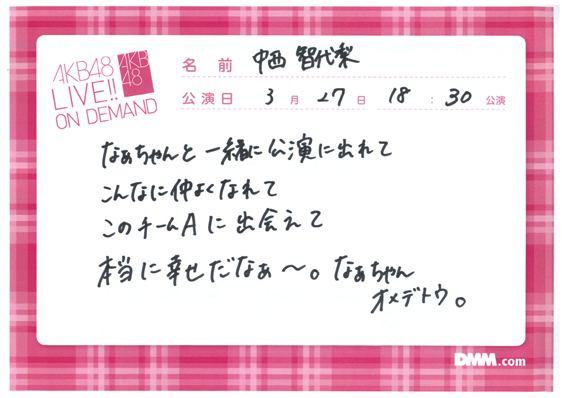 AKB48
LIVE!!
ON DEMAND
AKB
48
名 前 中西 智代梨
公演日 3 月 27 日 18 : 30 公演
なぁちゃんと一緒に公演に出れて
こんなに仲よくなれて
このチームAに出会えて
本当に幸せだなぁ〜。なぁちゃん
オメデトウ。
DMM.com